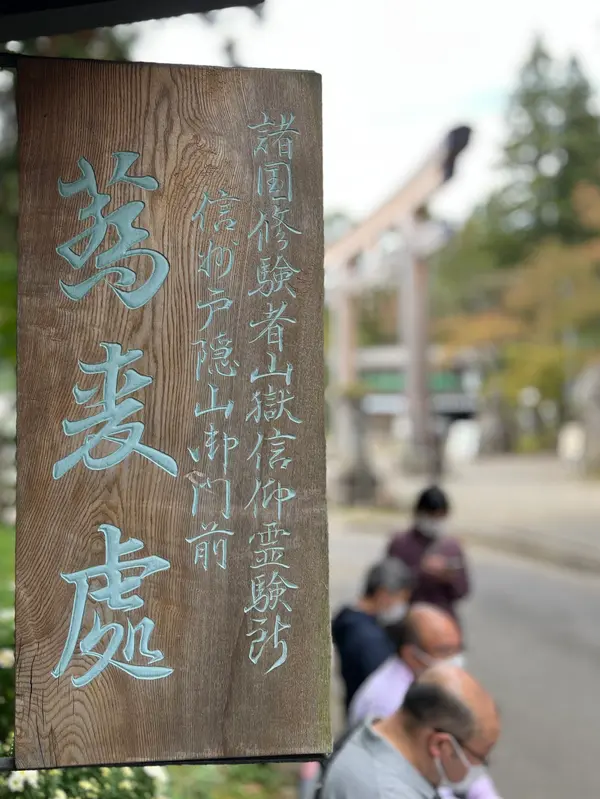 諸国修験者山獄信仰霊験所
信州戸隠山御門前
蕎麦處